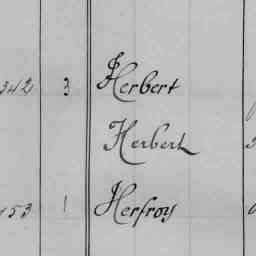 342 3 Herbert
Herbert
153 1 Herfroy